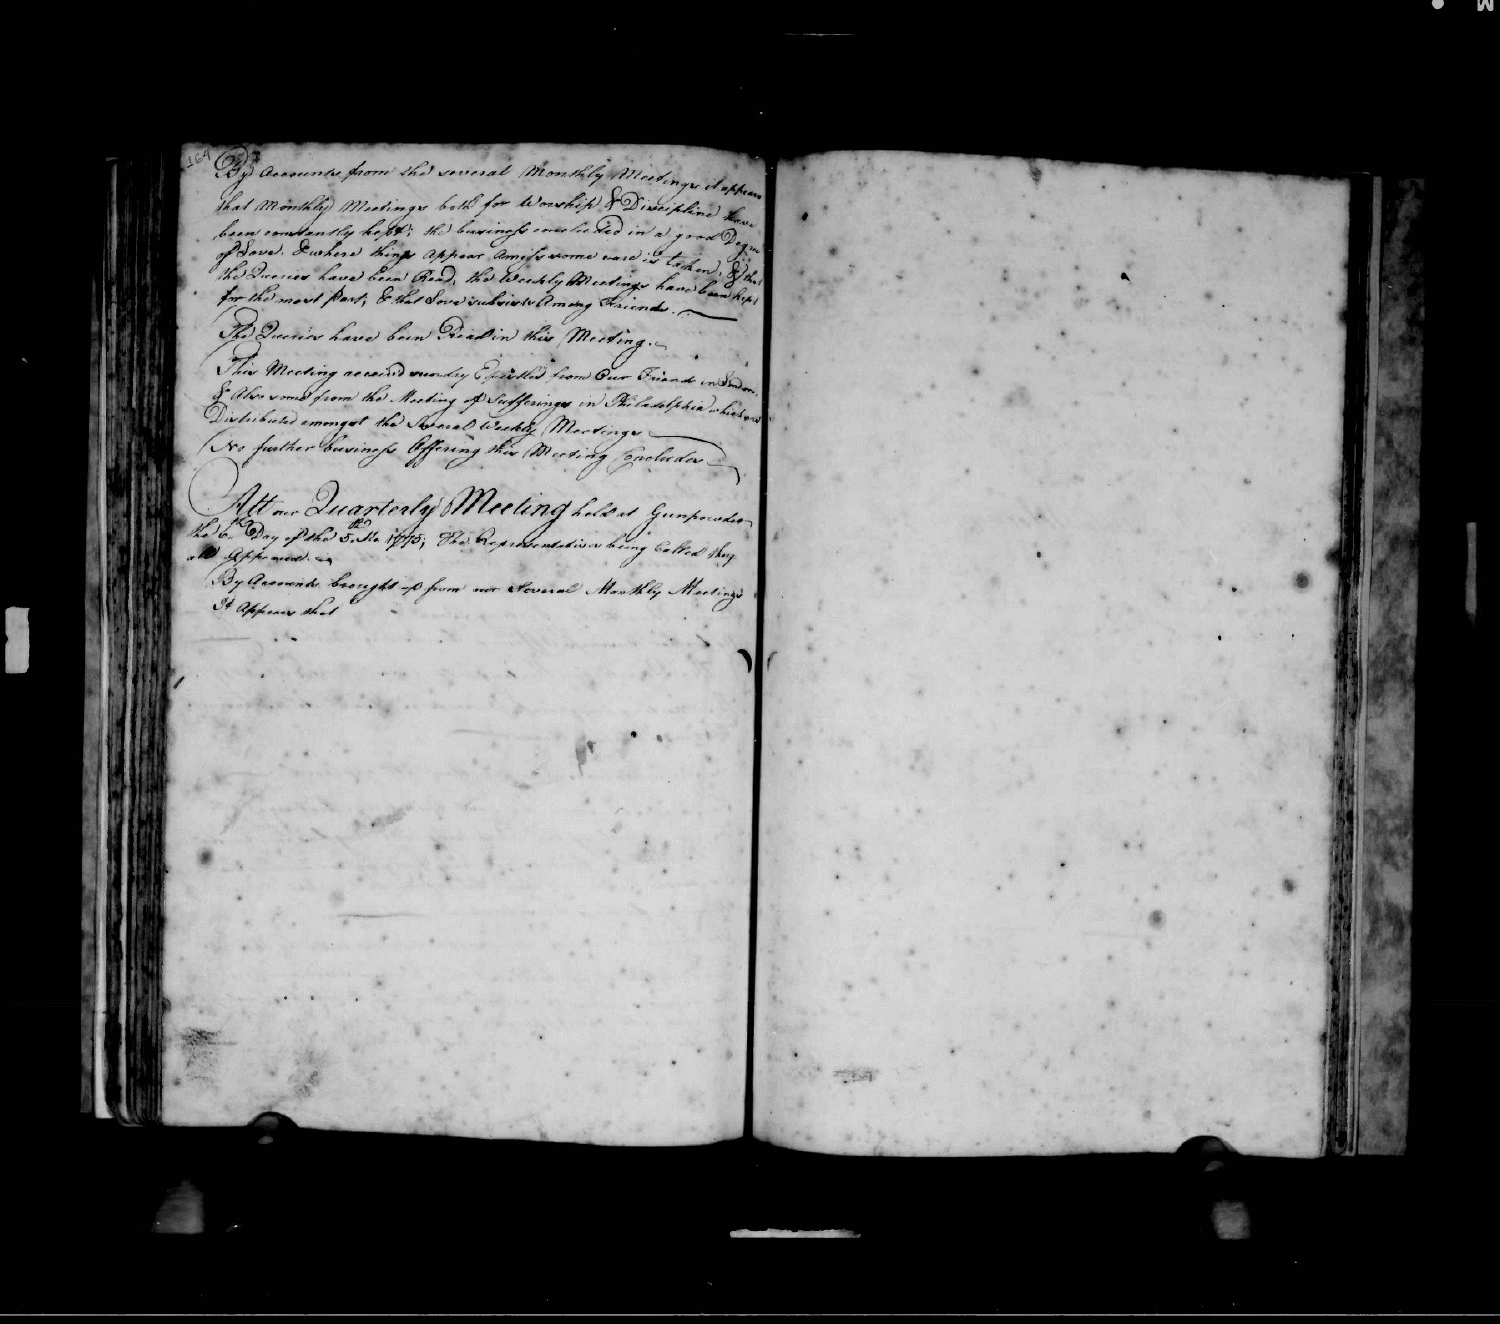 164
By Accounts from the several Monthly Meetings it appears
that Monthly Meetings both for Worship & Discipline have
been constantly kept; the business concluded in a good Degree
of Love. & where things appear amiss some care is taken, & that
the Queries have been Read, the Weekly Meetings have been kept
for the most Part, & that Love subsists Among Friends.
The Queries have been Read in this Meeting.
This Meeting received sundry Epistles from Our Friends in London
& Also some from the Meeting of Sufferings in Philadelphia which was
Distributed amongst the Several Weekly Meetings
No further business Offering this Meeting Concludes
Att our Quarterly Meeting held at Gunpowder
the 6th Day of the 5th Mo 1775; The Representatives being Called they
all Appeared.
By Accounts brought up from our Several Monthly Meetings
It Appears that
M